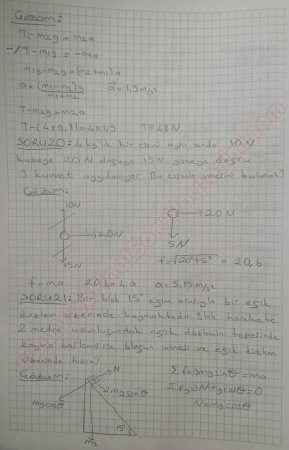 Çözüm:
T-m2g=m2a
-/T-m1g=-m1a
m1g-m2g=(m2+m1)a
a=(m1-m2)g/m1+m2 a=1,9m/s²
T-m2g=m2a
T-(4x9,8)=4x1,9 T=48N
SORU20: 4 kg'lık bir cismi aynı anda 10 N
kuzeye 20 N doğuya 15N güneye doğru
3 kuvvet uygulanıyor. Bu cismin ivmesini bulunuz?
Çözüm:
10N
20N
15N
20N
5N
f=√20²+5² = 20,6
f=ma 20,6=4.a a=5,15m/s²
SORU21: Bir blok 15° eğim açısıyla bir eğik
düzlem üzerinde kaymaktadır. Blok harekete
2 metre uzunluşundaki eğik düzlemin tepesinde
üzerinde hızını?
Çözüm:
N
mgsinθ
mgcosθ
mg
15°
Σfx=mgsinθ=ma
N=mgcosθ